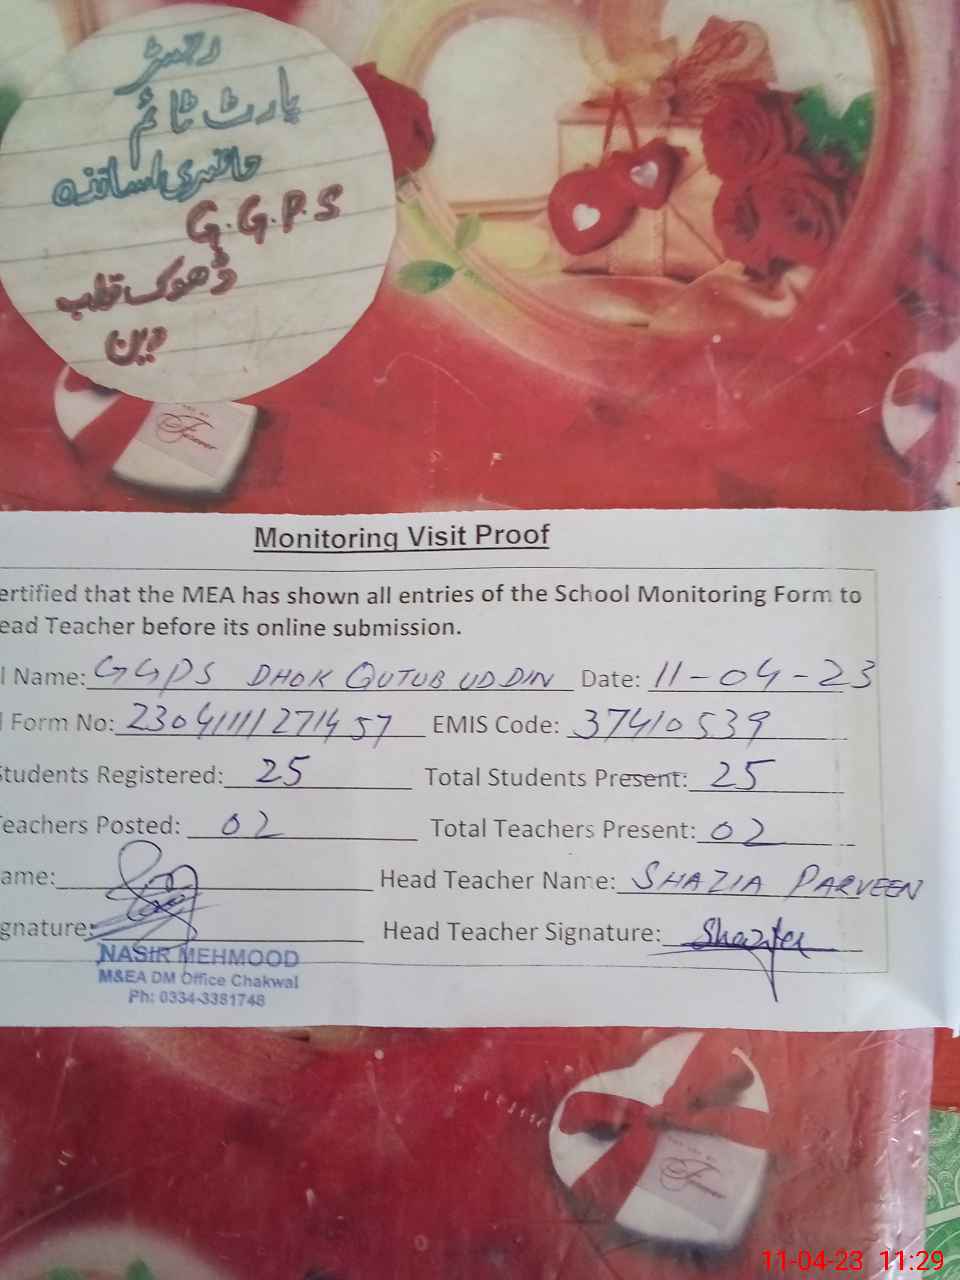 رجسٹر
پارٹ ٹائم
حاضری اساتذہ
G.G.P.S
ڈھوک قطب
دین
Forever
Monitoring Visit Proof
ertified that the MEA has shown all entries of the School Monitoring Form to
ead Teacher before its online submission.
l Name: GGPS DHOK QUTUB UDDIN Date: 11-04-23
l Form No: 23041111271457 EMIS Code: 37410539
Students Registered: 25 Total Students Present: 25
Teachers Posted: 02 Total Teachers Present: 02
ame: Head Teacher Name: SHAZIA PARVEEN
gnature: Head Teacher Signature: Shazia
NASIR MEHMOOD
M&EA DM Office Chakwal
Ph: 0334-3381748
Forever
11-04-23 11:29